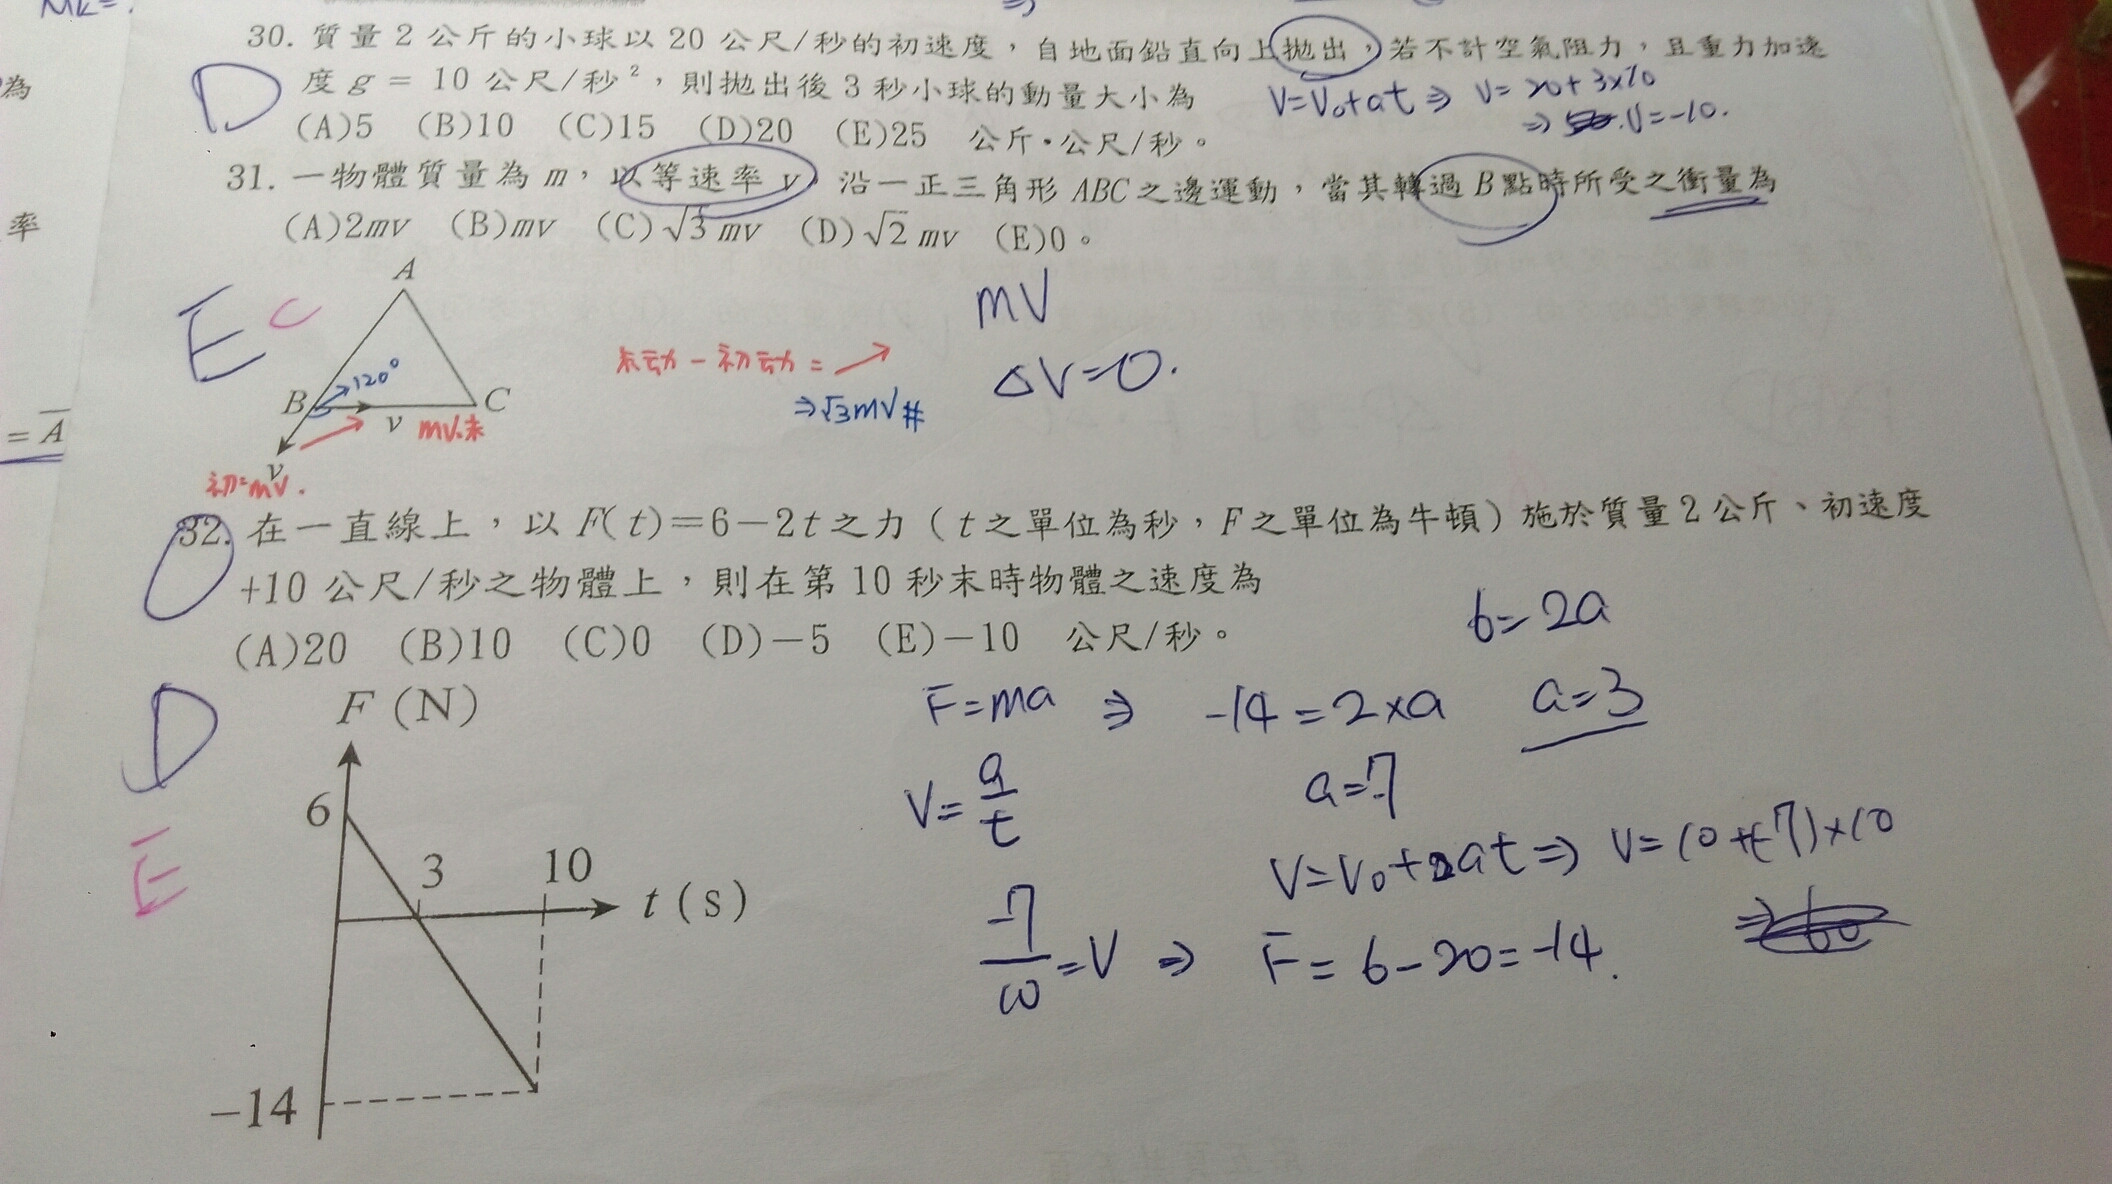 30. 質量 2 公斤的小球以 20 公尺/秒的初速度，自地面鉛直向上拋出，若不計空氣阻力，且重力加速
度 g = 10 公尺/秒²，則拋出後 3 秒小球的動量大小為
D
V=V₀+at ⇒ V= 20+3×10
⇒ V=-10.
(A)5 (B)10 (C)15 (D)20 (E)25 公斤·公尺/秒。
31. 一物體質量為 m，以等速率 v，沿一正三角形 ABC 之邊運動，當其轉過 B 點時所受之衝量為
(A)2mv (B)mv (C)√3 mv (D)√2 mv (E)0。
E C
A
B
C
120°
v
v
mV末
初=mV.
末動 - 初動 = ↗
⇒√3mV#
mV
ΔV=0.
32. 在一直線上，以 F(t)=6-2t 之力（t 之單位為秒，F 之單位為牛頓）施於質量 2 公斤、初速度
+10 公尺/秒之物體上，則在第 10 秒末時物體之速度為
(A)20 (B)10 (C)0 (D)-5 (E)-10 公尺/秒。
D
E
F (N)
6
3
10
t (s)
-14
6=2a
F=ma ⇒ -14=2×a
a=3
V=a/t
a=-7
V=V₀+at⇒ V=10+(-7)×10
-7/10=V ⇒ F=6-20=-14.
為
率
=A̅